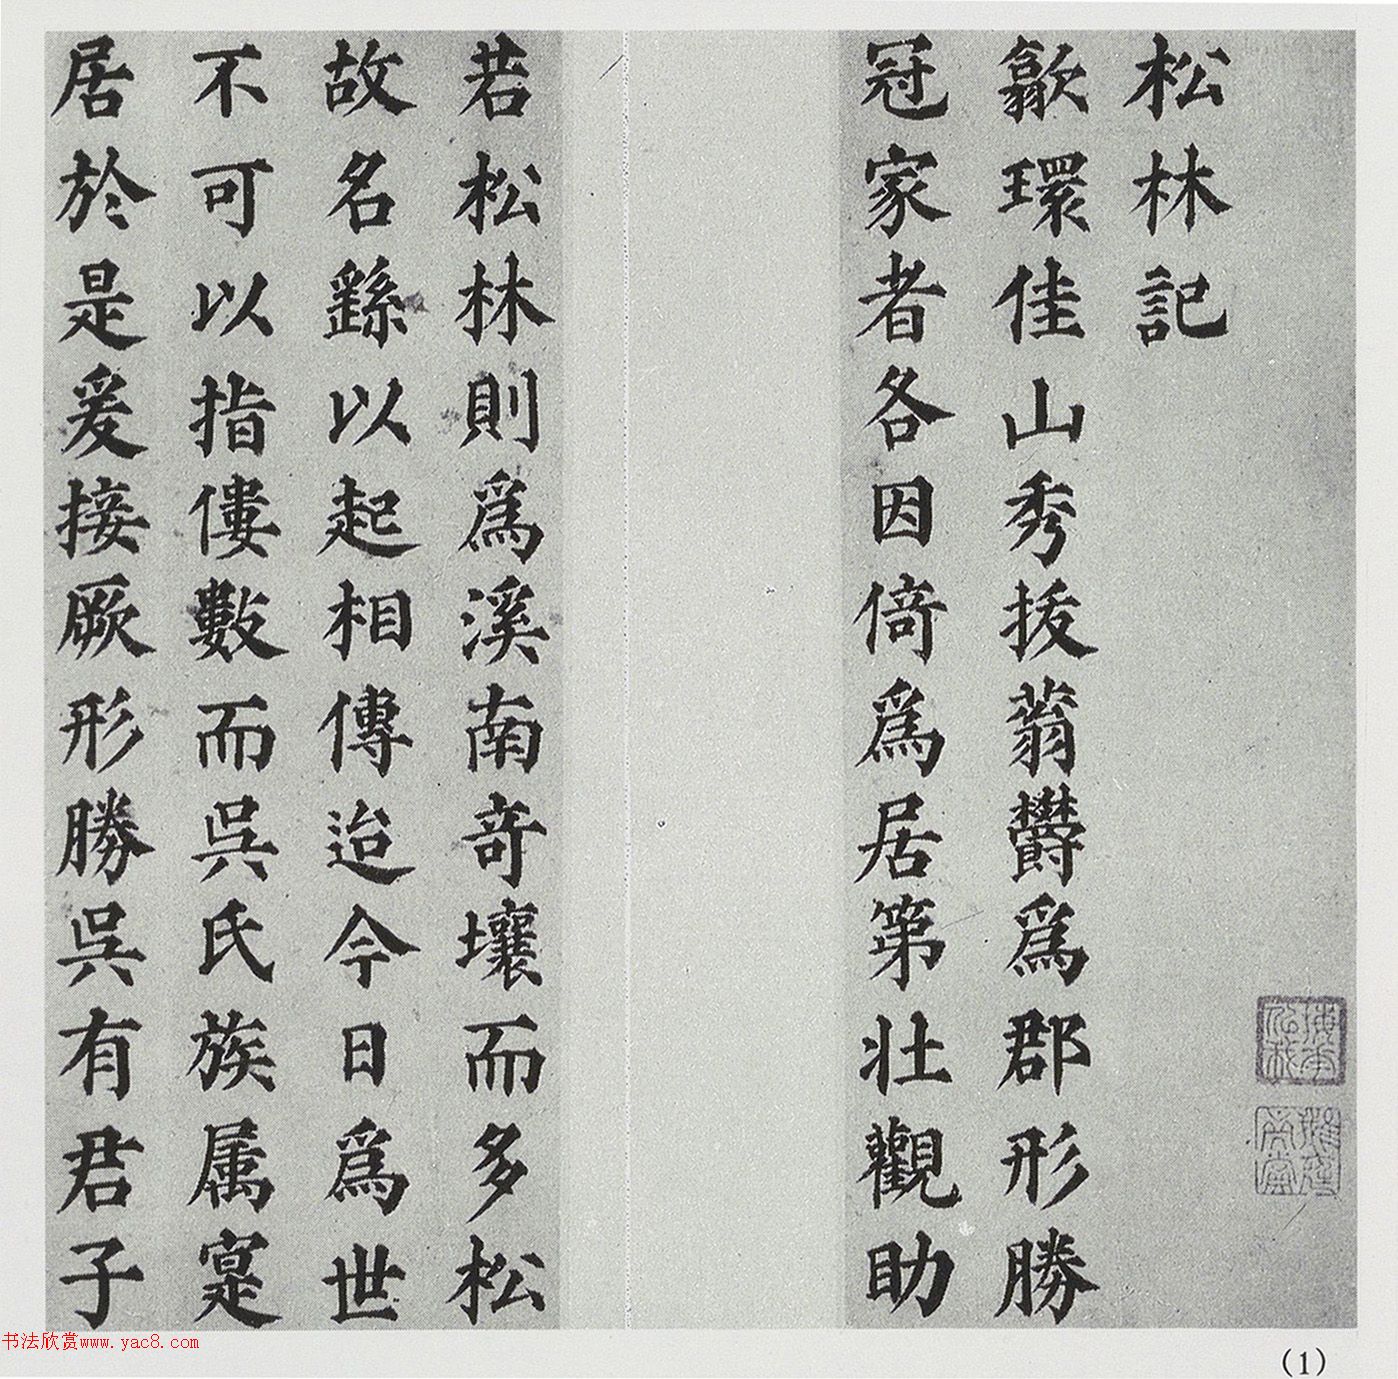 松林記
歙環佳山秀拔蓊欝爲郡形勝
冠家者各因倚爲居第壯觀助
若松林則爲溪南奇壤而多松
故名繇以起相傳迨今日爲世
不可以指僂數而吳氏族属寔
居於是爰接厥形勝吳有君子
书法欣赏www.yac8.com
(1)